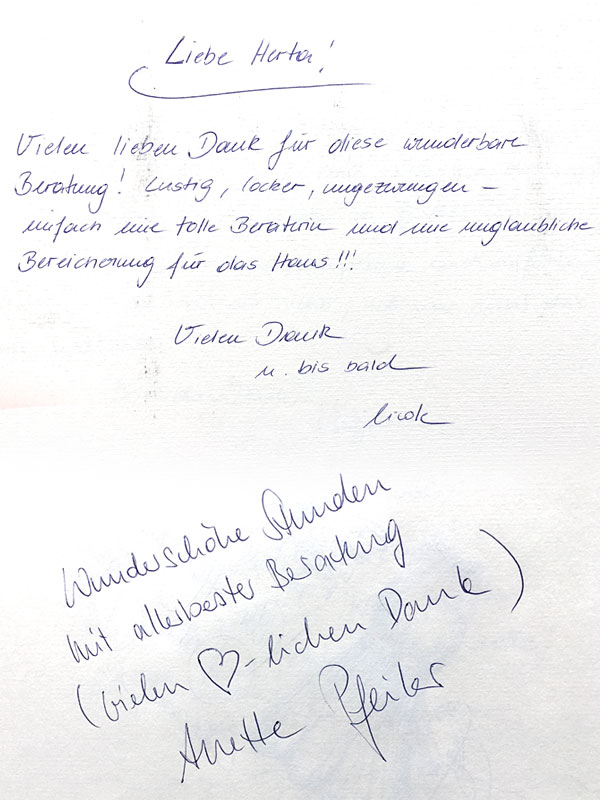 Liebe Herta!
Vielen lieben Dank für diese wunderbare
Beratung! Lustig, locker, ungezwungen –
einfach eine tolle Beraterin und eine unglaubliche
Bereicherung für das Haus!!!
Vielen Dank
u. bis bald
Wunderschöne Stunden
mit allerbester Beratung
(vielen ♡-lichen Dank)
Anette